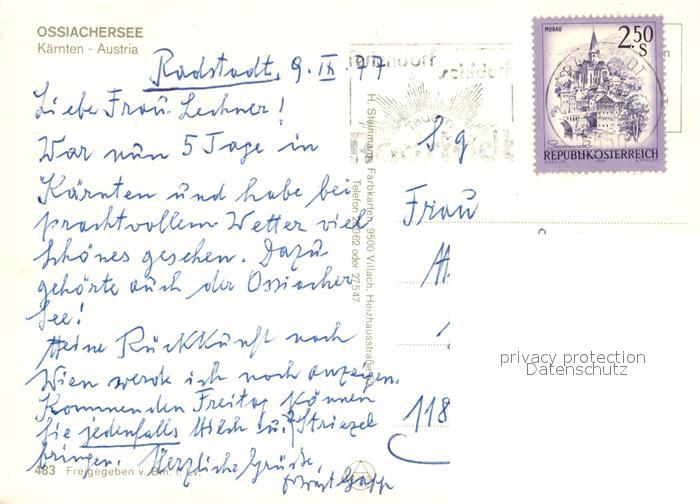 OSSIACHERSEE
Kärnten - Austria
Radstadt, 9. IX 77
Liebe Frau Lechner!
War nun 5 Tage in
Kärnten und habe bei
prachtvollem Wetter viel
schönes gesehen. Dazu
gehörte auch der Ossiacher
See!
Meine Rückkunft nach
Wien werde ich noch anzeigen.
Kommenden Freitag können
Sie jedenfalls Milch u. Striezel
bringen. Herzliche Grüsse,
483 Freigegeben v.
H. Steinmann, Farbkarten, 9500 Villach, Heizhausstraße
Telefon 27062 oder 27547
MURAU
2.50
S
REPUBLIK ÖSTERREICH
Sg.
Frau
118
privacy protection
Datenschutz